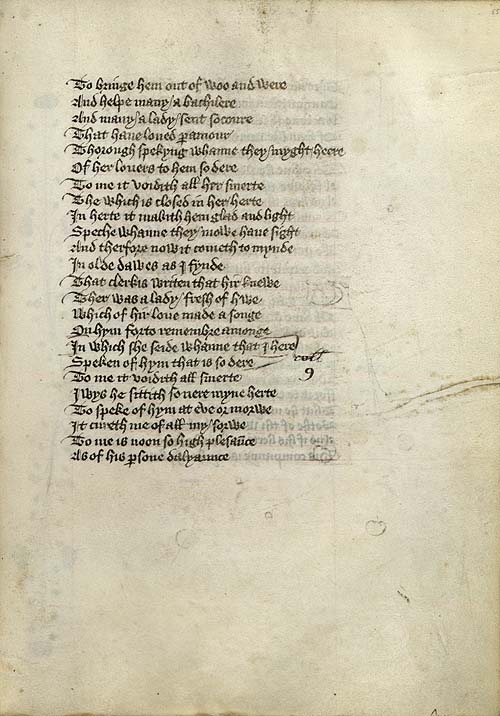 To bringe hem out of woo and were
And helpe many / a bachilere
And many / a lady / sent socoure
That haue loued paramour
Thorough spekyng whanne they / myght heere
Of her louers to hem so dere
To me it voidith all her smerte
The which is closed in her herte
In herte it makith hem glad and light
Speche whanne they / mowe haue sight
And therfore now it cometh to mynde
In olde dawes as I fynde
That clerkis writen that hir knewe
Ther was a lady / fresh of hwe
Which of hir loue made a songe
On hym forto remembre amonge
In which she seide whanne that I here
Speken of hym that is so dere
To me it voidith all smerte
Iwys he sittith so nere myne herte
To speke of hym at eve or morwe
It cureth me of all my / sorwe
To me is noon so high plesaunce
As of his persone dalyaunce
9